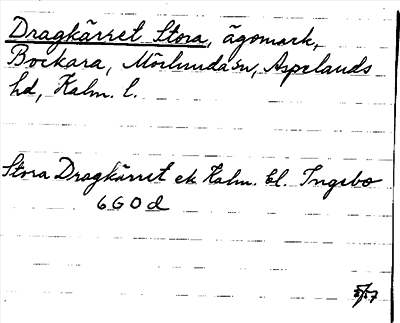 Dragkärret Stora, ägomark,
Bockara, Mörlunda sn, Aspelands
hd, Kalm. l.
Stora Dragkärret ek Kalm. bl. Ingebo
6 G O d
5/57